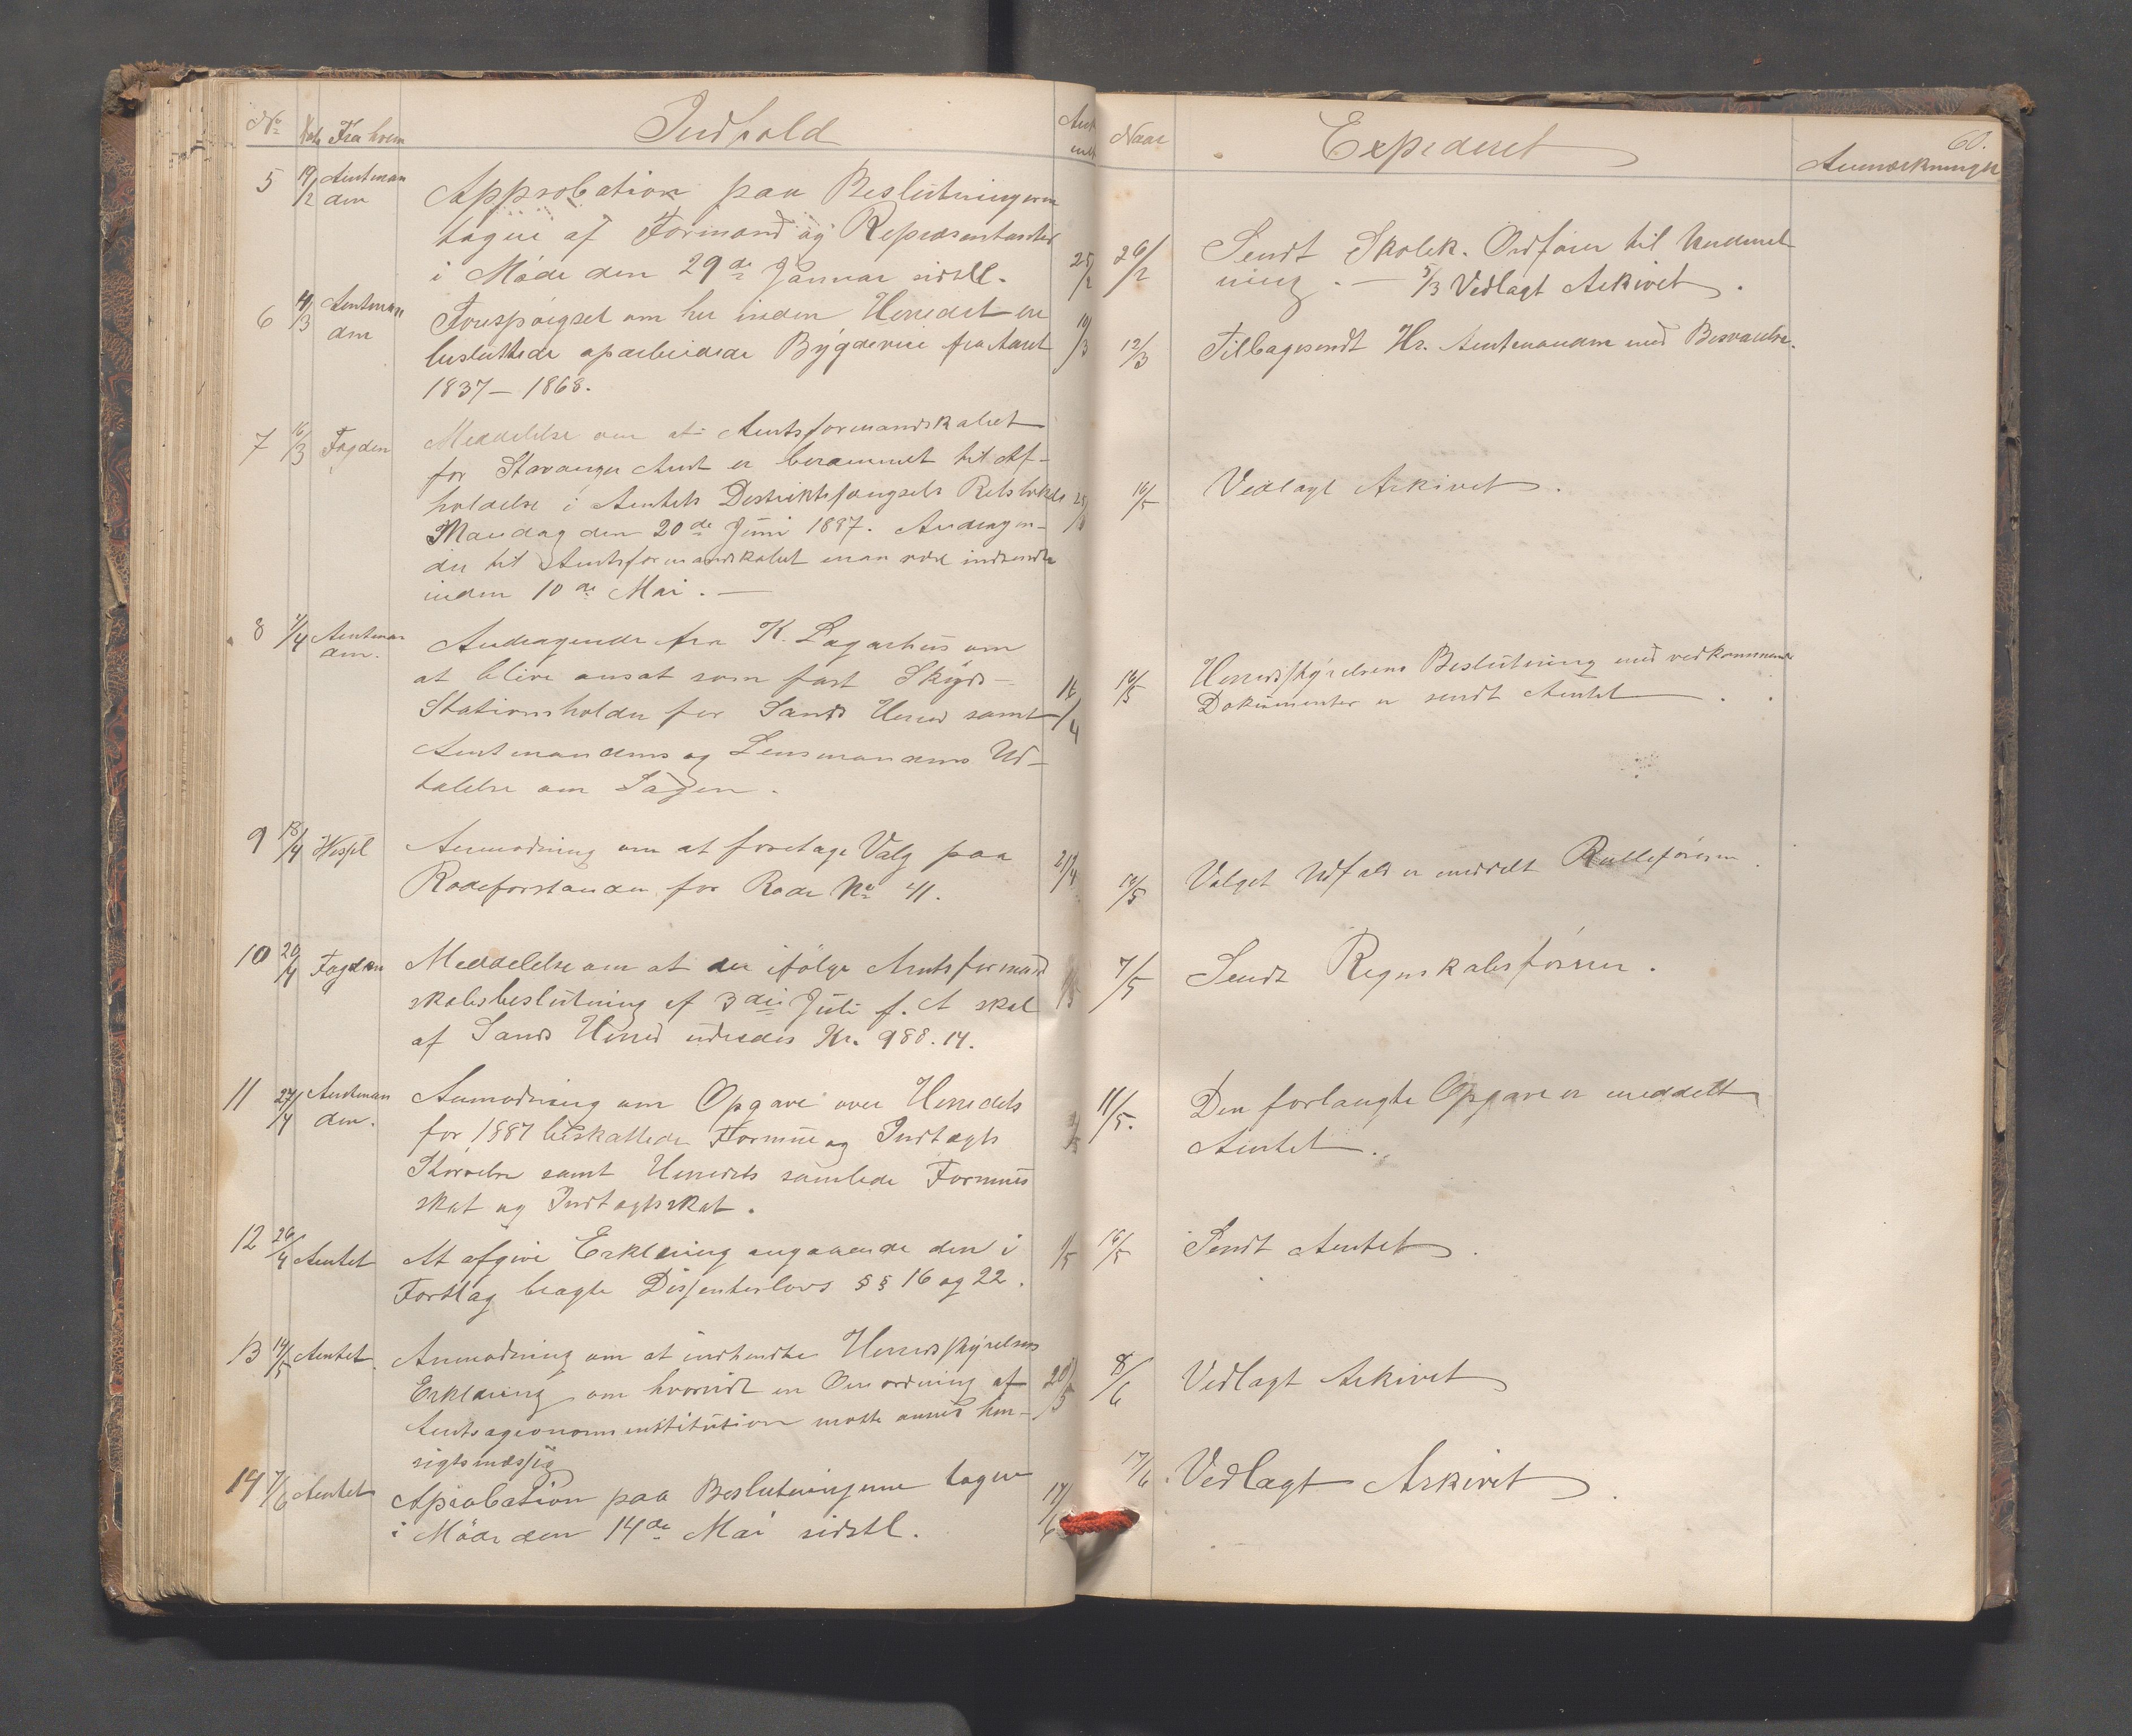 No Dato Fra hvem Indhold Ank
met
5 19/2 Amtman
den
Approbation paa Beslutningerne
tagne af Formænd og Repræsentanter
i Möde den 29de Januar sidstl. 25/2
6 4/3 Amtman
den
Forespörgsel om her inden Herredet er
besluttede oparbeidede Bygdeveie fra Aaret 10/3
1837 – 1868.
7 16/3 Fogden Meddelelse om at Amtsformandskabet
for Stavanger Amt er berammet til Af-
holdelse i Amtets Distriktsfængsels Retslokale
Mandag den 20de Juni 1887. Andragen-
der til Amtsformandskabet maa være indsendte
inden 10de Mai. —
8 /4 Amtman
den.
Andragende fra K. Lagarhus om
at blive ansat som fast Skyds-
Stationsholder for Sands Herred samt 16/4
Amtmandens og Lensmandens Ud-
talelse om Sagen.
9 18/4 Anmodning om at foretage Valg paa
Rodeforstander for Rode No 41. 21/4
10 20/4 Fogden Meddelelse om at der ifölge Amtsformand
skabsbeslutning af 3die Juli f. A skal
af Sands Herred udredes Kr. 988.14.
11 27/4 Amtman
den.
Anmodning om Opgave over Herredets
for 1887 beskattede Formue og Indtægts
Störrelse samt Herredets samlede Formues
skat og Indtægtsskat.
12 26/4 Amtet At afgive Erklæring angaaende den i 1/5
Forslag bragte Dissenterlovs §§ 16 og 22.
13 14/5 Amtet Anmodning om at indhendte Herredsstyrelsens
Erklæring om hvorvidt en Omordning af 20/5
Amtsagronominstitution maatte ansees hen-
sigtsmæssig
14 7/6 Amtet Aprobation paa Beslutningerne tagne 17/6
i Möde den 14de Mai sidstl.
Naar Expederet Anmærkninger
60.
26/2 Sendt Skolek. Ordförer til Underret
ning. — 5/3 Vedlagt Arkivet.
12/3 Tilbagesendt Hr. Amtmanden med Besvarelse.
16/5 Vedlagt Arkivet.
16/5 Herredsstyrelsens Beslutning med vedkommende
Dokumenter er sendt Amtet.
16/5 Valget Udfald er meddelt Rulleföreren.
7/5 Sendt Regnskabsförer.
11/5. Den forlangte Opgave er meddelt
Amtet.
16/5 Sendt Amtet.
8/6 Vedlagt Arkivet
17/6 Vedlagt Arkivet.